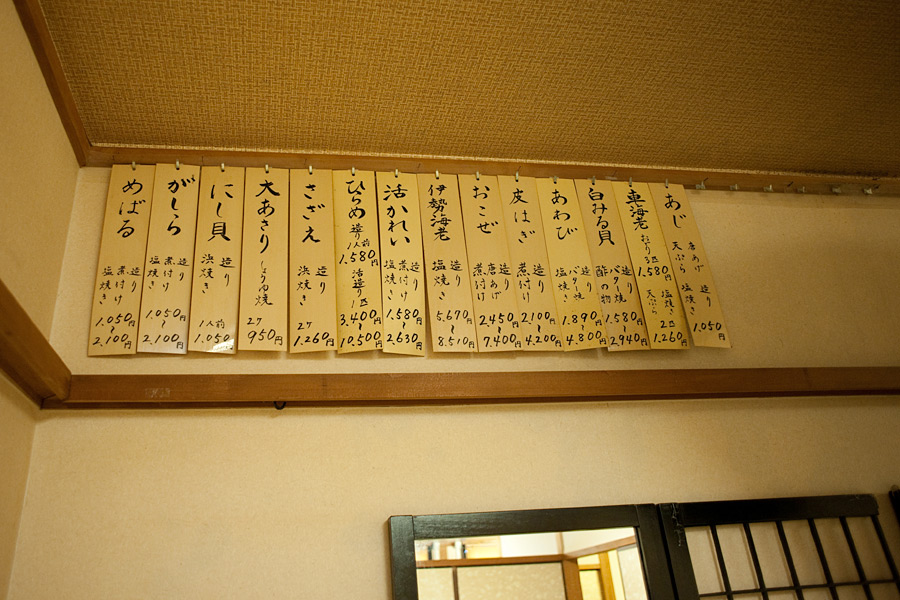 あじ
唐あげ
天ぷら
造り
塩焼き
1.050円
車海老
おどり3匹
1.580円
塩焼き
天ぷら
1.260円
白みる貝
造り
バター焼
酢の物
1.580円
〜
2.940円
あわび
造り
バター焼
塩焼き
1.890円
〜
4.800円
皮はぎ
造り
煮付け
2.100円
〜
4.200円
おこぜ
造り
唐あげ
煮付け
2.450円
〜
7.400円
伊勢海老
造り
塩焼き
5.670円
〜
8.510円
活かれい
造り
煮付け
塩焼き
1.580円
〜
2.630円
ひらめ
造り
1人前
1.580円
活造り
1匹
3.400円
〜
10.500円
さざえ
造り
浜焼き
2ケ
1.260円
大あさり
しょうゆ焼
2ケ
950円
にし貝
造り
浜焼き
1人前
1.050円
がしら
造り
煮付け
塩焼き
1.050円
〜
2.100円
めばる
造り
煮付け
塩焼き
1.050円
〜
2.100円